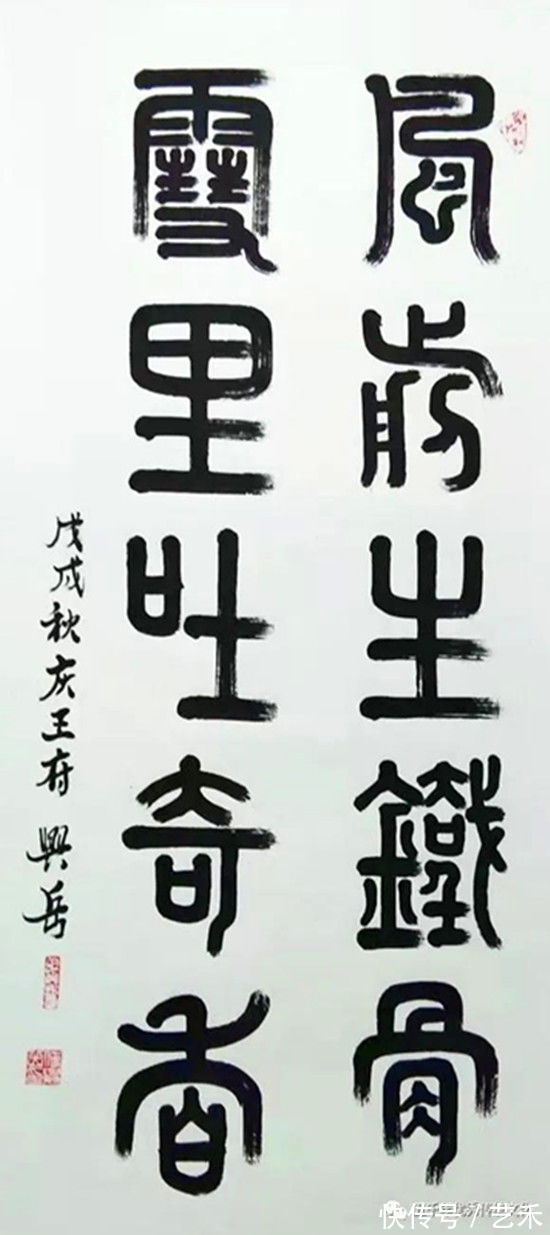 風前生鐵骨
雪里吐奇香
戊戌秋庆王府 興岳
快传号 / 艺禾